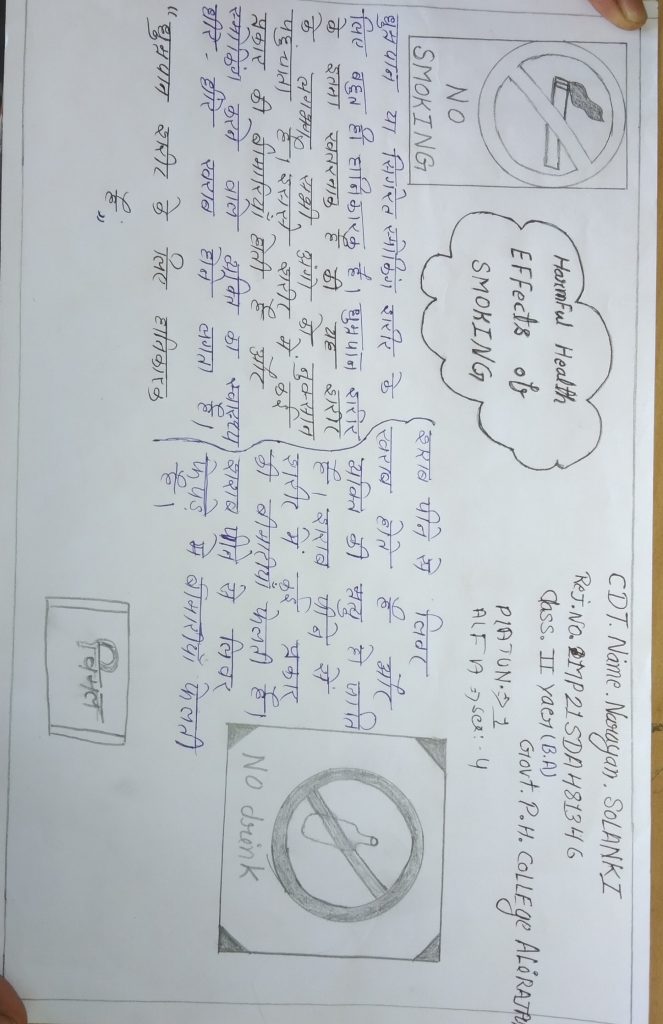 CDT. Name. Narayan. SOLANKI
Rej. NO. MP21SDA481346
Class. II Year (B.A)
Govt. P.H. COLLEge ALiRAJPU
PlATUN.→ 1
ALFA → sec:- 4
Harmful Health
Effects of
SMOKING
NO
SMOKING
धुम्रपान या सिगरेट स्मोकिंग शरीर के
लिए बहुत ही हानिकारक है। धुम्रपान शरीर
के इतना खतरनाक है की यह शरीर
के लगभग सभी अंगो को नुकसान
पहुंचाता है। इससे शरीर में कई
प्रकार की बीमारियां होती है और
स्मोकिंग करने वाले व्यक्ति का स्वास्थ्य
धीरे-धीरे खराब होने लगता है।
“धुम्रपान शरीर के लिए हानिकारक
है”
शराब पीने से लिवर
खराब होते है और
व्यक्ति की मृत्यु हो जाति
है। शराब पीने से
शरीर में कई प्रकार
की बीमारीयां फेलती है।
शराब पीने से लिवर
फेफड़े में बीमारीयाँ फेलती
है।
No drink